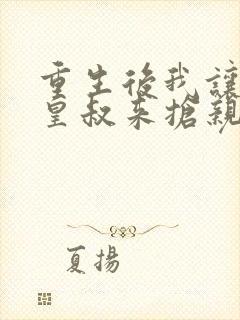 重生後我讓
皇叔來搶親
夏揚